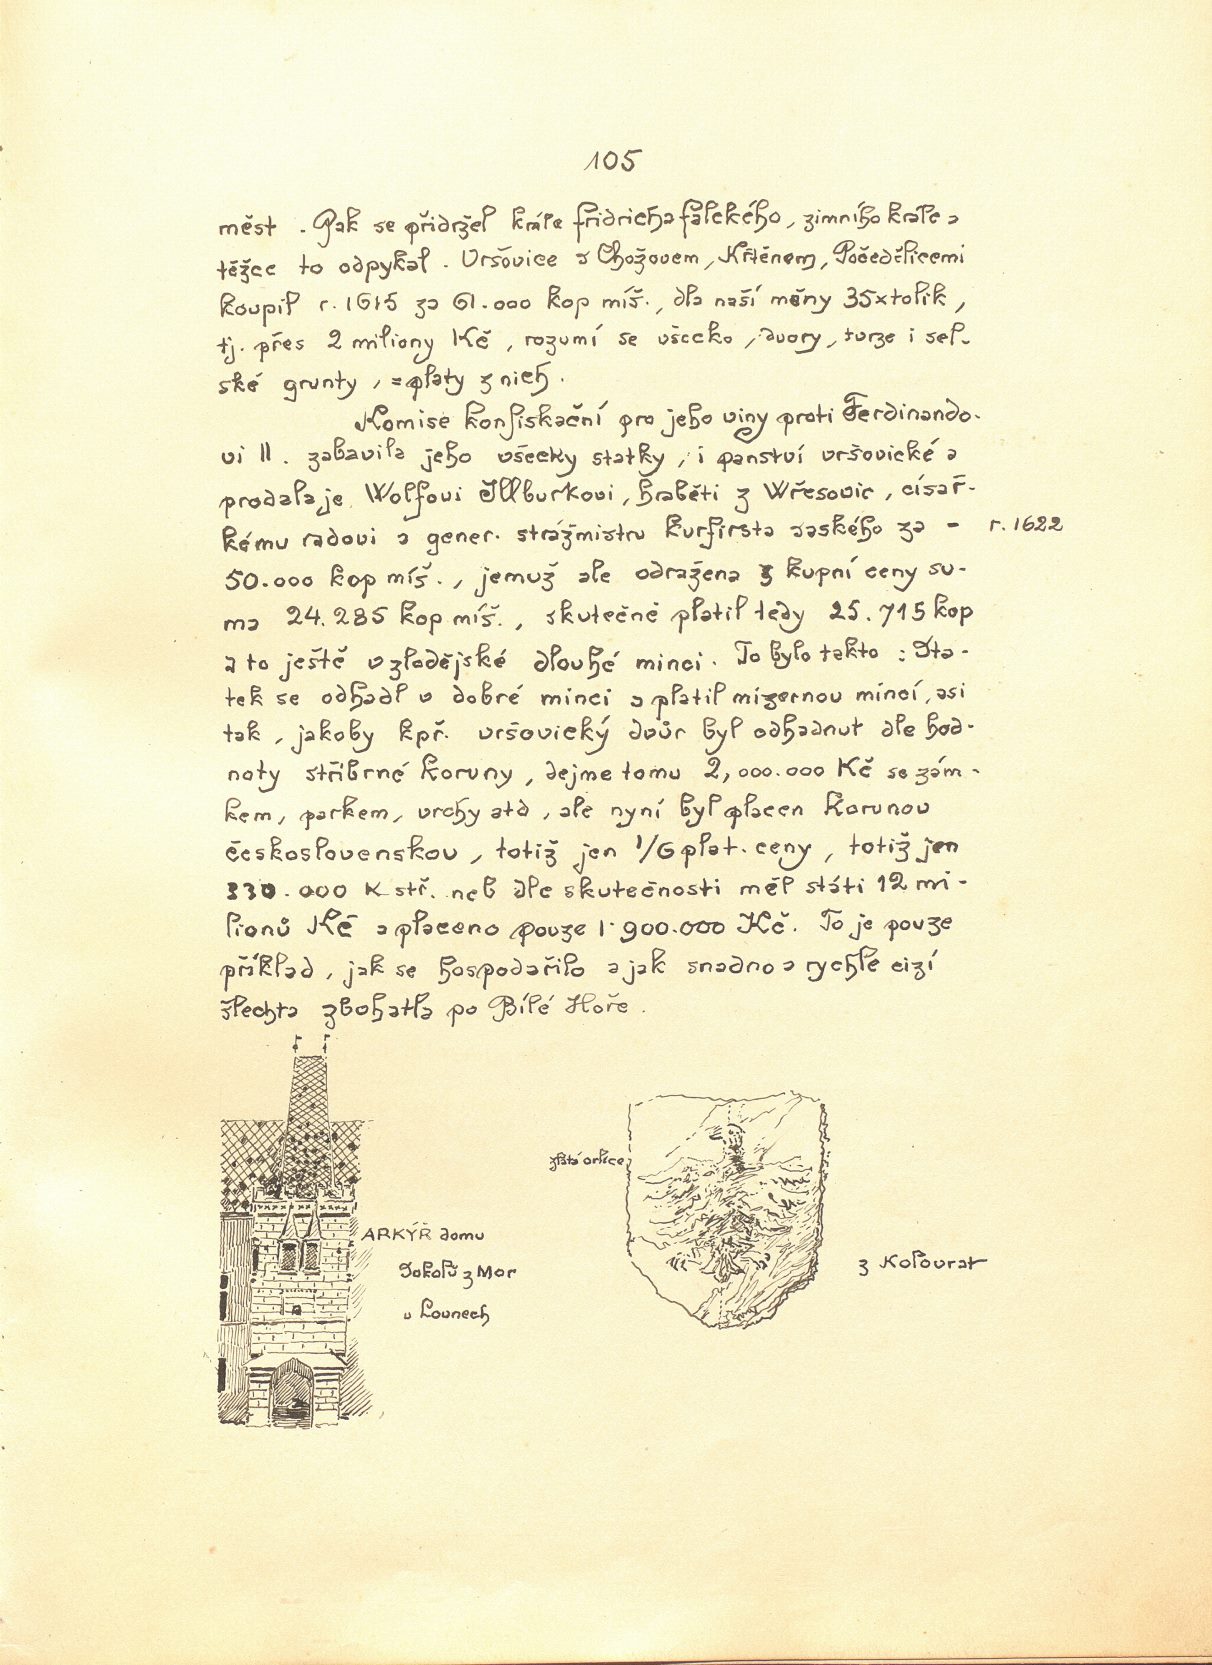 105
měst . Pak se přidržel krále fridricha falckého, zimního krále a
těžce to odpykal . Vršovice s Chožovem, Křtěnem, Počedělicemi
koupil r. 1615 za 61.000 kop míš., dla naší měny 35xtolik,
tj. přes 2 miliony Kč, rozumí se všecko, dvory, tvrze i sel-
ské grunty, = platy z nich.
Komise konfiskační pro jeho viny proti Ferdinando-
vi II. zabavila jeho všecky statky, i panství vršovické a
prodala je Wolfovi Illburkovi, hraběti z Wřesovic, císař-
kému radovi a gener. strážmistru kurfirsta saského za - r. 1622
50.000 kop míš., jemuž ale odražena z kupní ceny su-
ma 24.285 kop míš., skutečně platil tedy 25.715 kop
a to ještě v zlodějské dlouhé minci. To bylo takto : Sta-
tek se odhadl v dobré minci a platil mizernou mincí, asi
tak, jakoby kpř. vršovický dvůr byl odhadnut dle hod-
noty stříbrné koruny, dejme tomu 2,000.000 Kč se zám-
kem, parkem, vrchy atd, ale nyní byl placen korunou
československou, totiž jen 1/6 plat. ceny, totiž jen
330.000 K stř. neb dle skutečnosti měl státi 12 mi-
lionů Kč a placeno pouze 1.900.000 Kč. To je pouze
příklad, jak se hospodařilo a jak snadno a rychle cizí
šlechta zbohatla po Bílé Hoře.
zlatá orlice
ARKÝŘ domu
Sokolů z Mor
v Lounech
z Kolovrat